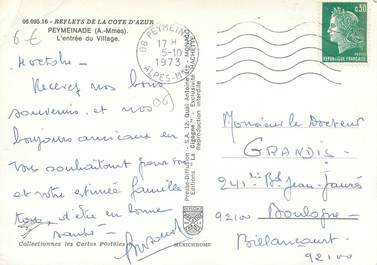 06.093.16 - REFLETS DE LA COTE D'AZUR
PEYMEINADE (A.-Mmes).
L'entrée du Village.
6 €
Recevez nos bons
souvenirs et nos
bonjours amicaux en
vous souhaitant pour vous
et votre estimée famille
tous, d'être en bonne
santé -
Collectionnez les Cartes Postales
MEXICHROME
Editions "La Cigogne" - Exclusivité HACHETTE
Reproduction interdite
06 PEYMEINADE
17 H
5-10
1973
ALPES-MMES
0,30
REPUBLIQUE FRANÇAISE
(06)
Monsieur le Docteur
GRANDIS
241 bis Bd Jean-Jaurès
92100 Boulogne-
Billancourt
92100